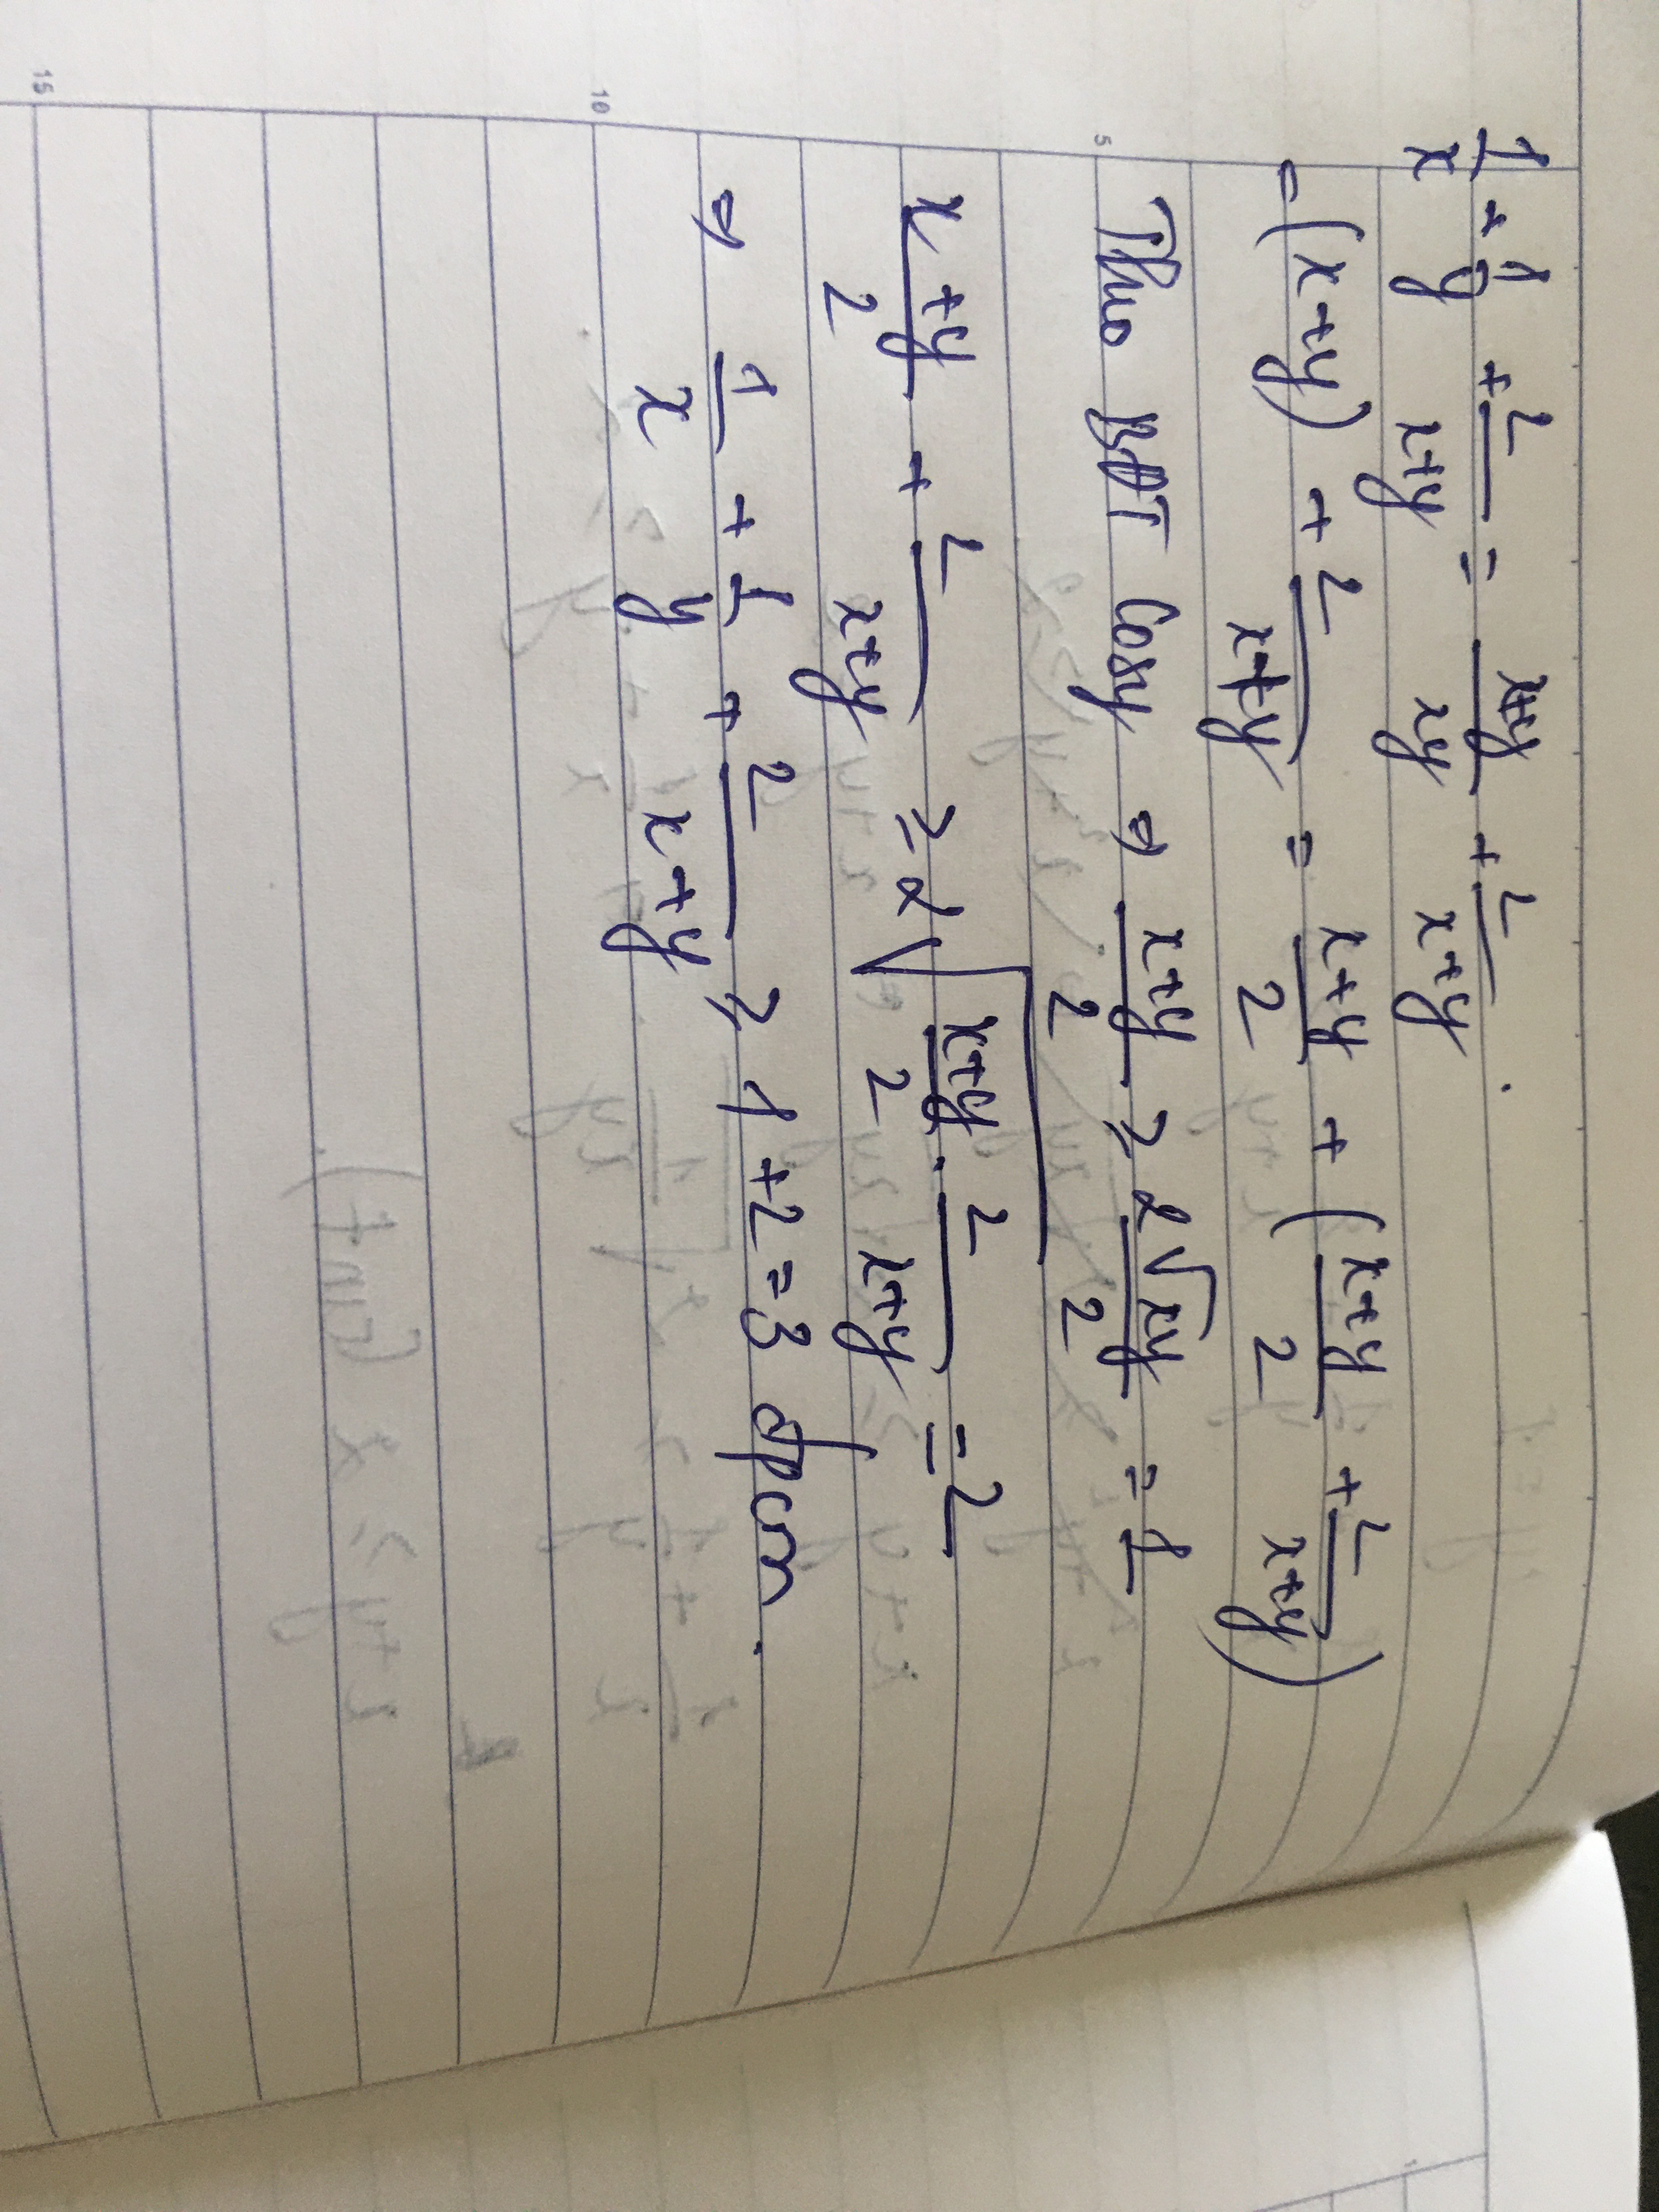 1/x + 1/y + 2/(x+y) = (x+y)/(xy) + 2/(x+y).
= (x+y) + 2/(x+y) = (x+y)/2 + ((x+y)/2 + 2/(x+y))
Theo BĐT Cosy ⇒ (x+y)/2 ≥ 2√(xy)/2 = 1
(x+y)/2 + 2/(x+y) ≥ 2√((x+y)/2 · 2/(x+y)) = 2
⇒ 1/x + 1/y + 2/(x+y) ≥ 1 + 2 = 3 đpcm.
5
10
15